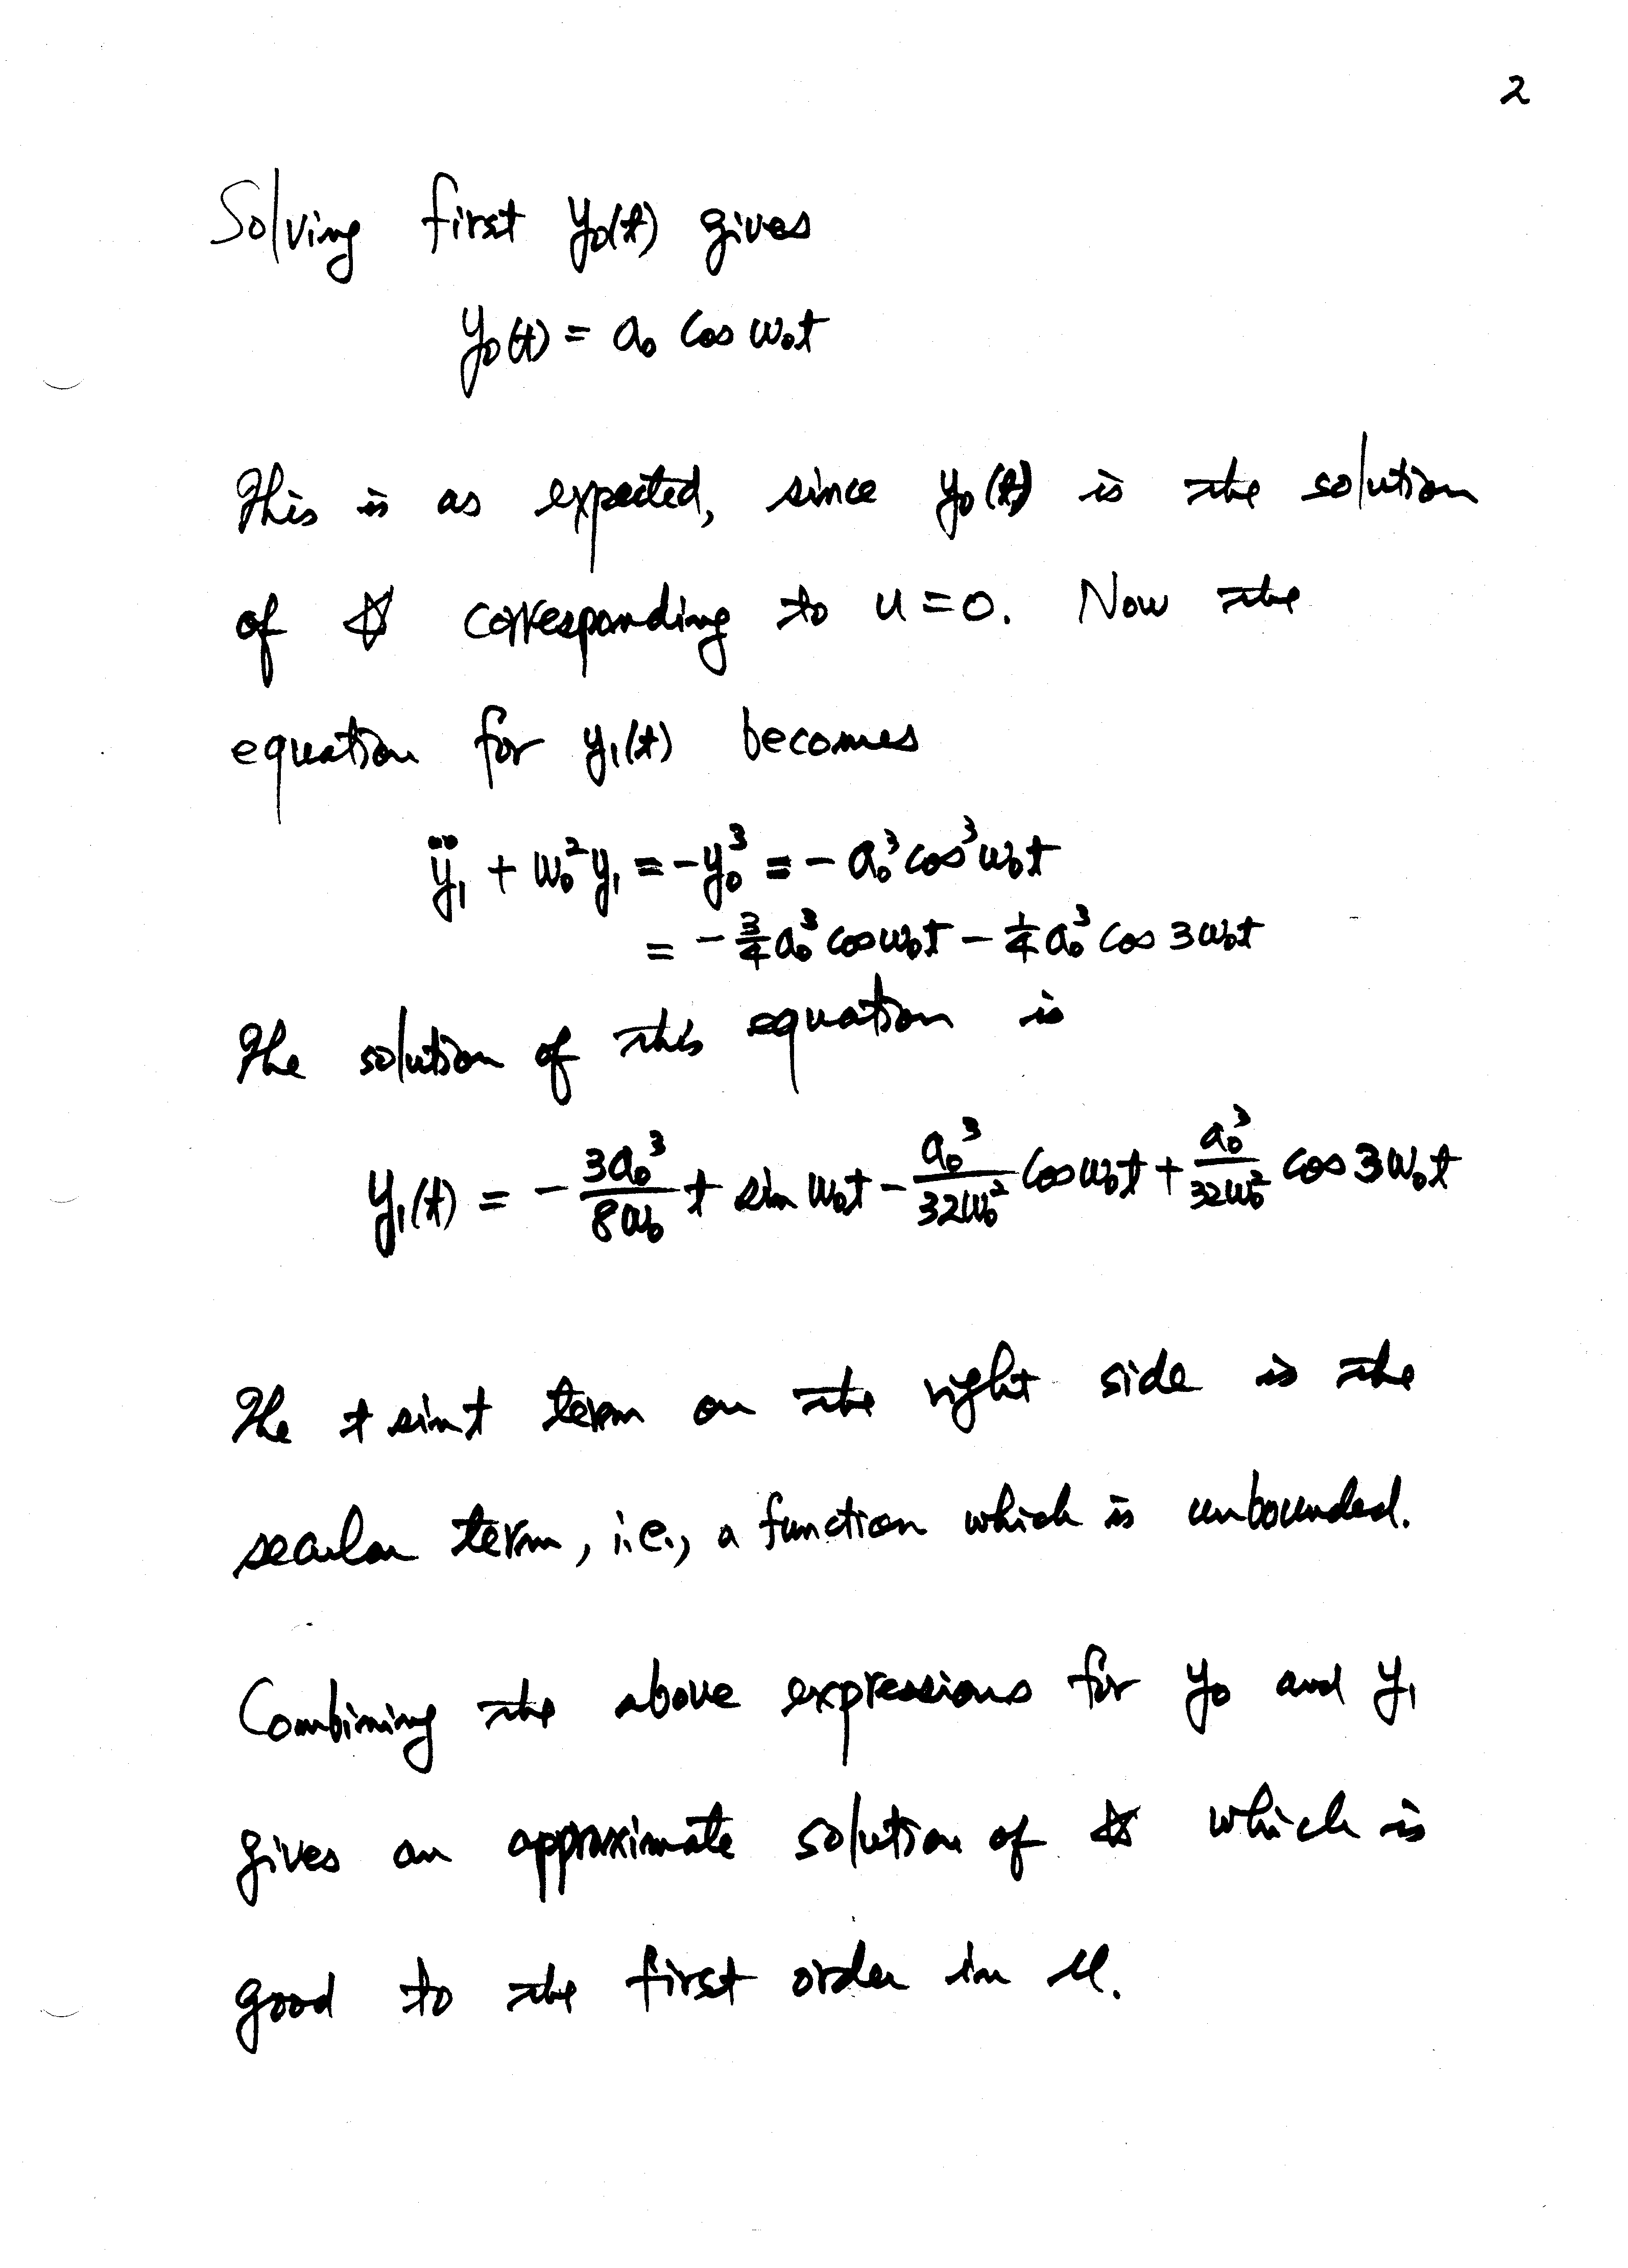 2
Solving first y₀(t) gives
y₀(t) = a₀ cos ω₀t
This is as expected, since y₀(t) is the solution
of ☆ corresponding to u = 0. Now the
equation for y₁(t) becomes
ÿ₁ + ω₀² y₁ = -y₀³ = - a₀³ cos³ ω₀t
= - 3/4 a₀³ cos ω₀t - 1/4 a₀³ cos 3ω₀t
The solution of this equation is
y₁(t) = - 3a₀³/8ω₀ t sin ω₀t - a₀³/32ω₀² cos ω₀t + a₀³/32ω₀² cos 3ω₀t
The t sin t term on the right side is the
secular term, i.e., a function which is unbounded.
Combining the above expressions for y₀ and y₁
gives an approximate solution of ☆ which is
good to the first order in u.